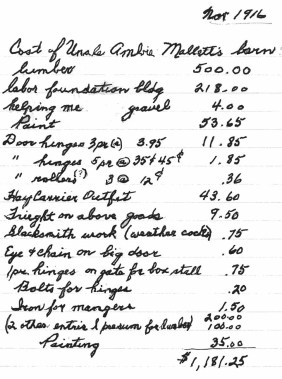 Nov 1916
Cost of Uncle Ambie Mallett's barn
lumber 500.00
labor foundation bldg 218.00
helping me gravel 4.00
Paint 53.65
Door hinges 3pr @ 3.95 11.85
" hinges 5pr @ 35¢ 45¢ 1.85
" rollers(?) 3 @ 12¢ .36
Hay Carrier Outfit 43.60
Frieght on above goods 9.50
Blacksmith work (weather cocks) .75
Eye & chain on big door .60
1pr. hinges on gate for box stall .75
Bolts for hinges .20
Iron for mangers 1.50
(2 other entries I presum for lumber) 200.00
100.00
Painting 35.00
$1,181.25